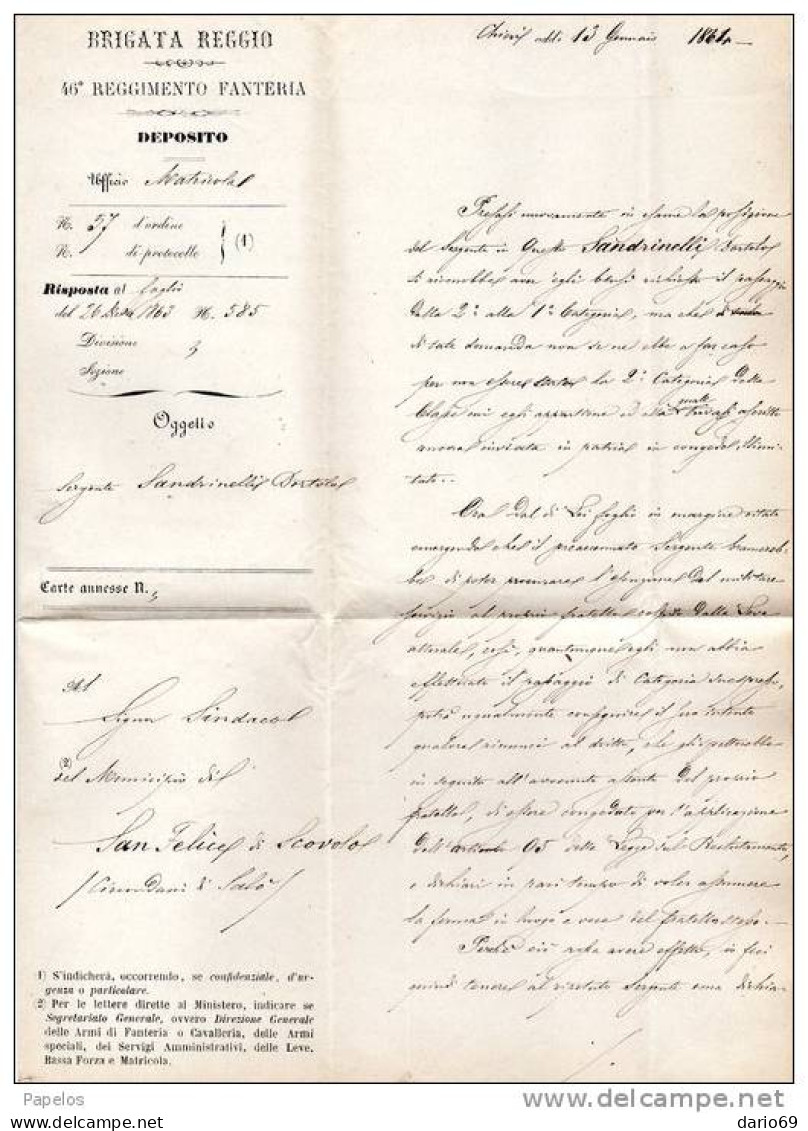 BRIGATA REGGIO
46º REGGIMENTO FANTERIA
DEPOSITO
Ufficio Matricola
N. 57 d'ordine
N. di protocollo (1)
Risposta al foglio
del 26 Dbre 1863 N. 585
Divisione 3
Sezione
Oggetto
Sergente Sandrinelli Bortolo
Carte annesse N.
Al
Signor Sindaco
(2)
del Municipio di
San Felice di Scovolo
/Circondario di Salò/
1) S'indicherà, occorrendo, se confidenziale, d'ur-
genza o particolare.
2) Per le lettere dirette al Ministero, indicare se
Segretariato Generale, ovvero Direzione Generale
delle Armi di Fanteria o Cavalleria, delle Armi
speciali, dei Servigi Amministrativi, delle Leve,
Bassa Forza e Matricola.
addì 13 Gennaio 1864
Presasi nuovamente in esame la posizione
del Sergente in Questo Sandrinelli Bortolo
si rinvolbe aver egli bensì richiesto il passaggio
dalla 2ª alla 1ª Categoria, ma che
di tale domanda non se ne ebbe a far caso
per non essere stata la 2ª Categoria della
Classe cui egli appartiene ed alla quale trovasi ascritto
ancora inviata in patria in congedo illimi-
tato.
Ora dal di Lei foglio in margine citato
emergendo che il preaccennato Sergente bramereb-
be di poter procurare l'esenzione dal militare
servizio al proprio fratello dalla Leva
attuale, così, quantunque egli non abbia
effettuato il passaggio di Categoria
potrà ugualmente conseguire il suo intento
qualora rinunci al dritto, che gli spetterebbe
in seguito all'avvenuto assento del proprio
fratello, di essere congedato per l'applicazione
dell'articolo 95 della Legge sul Reclutamento,
e dichiari in pari tempo di voler assumere
la ferma in luogo e vece del fratello stesso.
Perchè ciò possa avere effetto, si feci
quindi tenere al ripetuto Sergente una dichia-
Papelos
delcampe.net
dario69